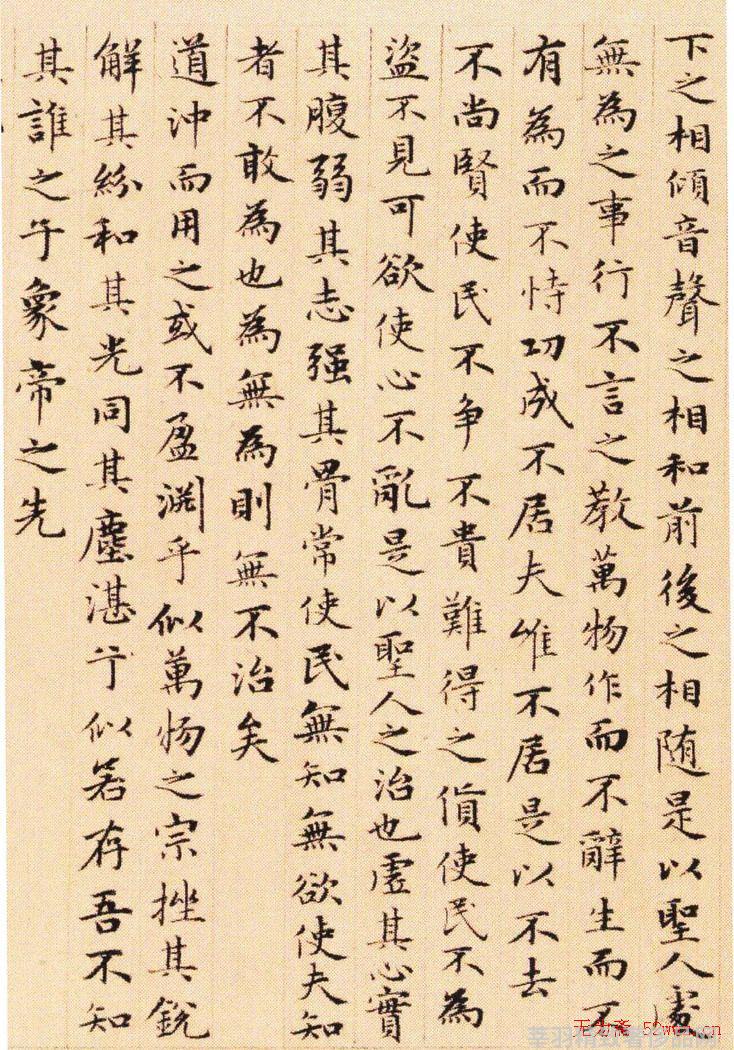 下之相傾音聲之相和前後之相随是以聖人處
無為之事行不言之教萬物作而不辭生而不
有為而不恃功成不居夫唯不居是以不去
不尚賢使民不争不貴難得之貨使民不為
盜不見可欲使心不亂是以聖人之治也虛其心實
其腹弱其志强其骨常使民無知無欲使夫知
者不敢為也為無為則無不治矣
道沖而用之或不盈淵乎似萬物之宗挫其銳
解其紛和其光同其塵湛兮似若存吾不知
其誰之子象帝之先